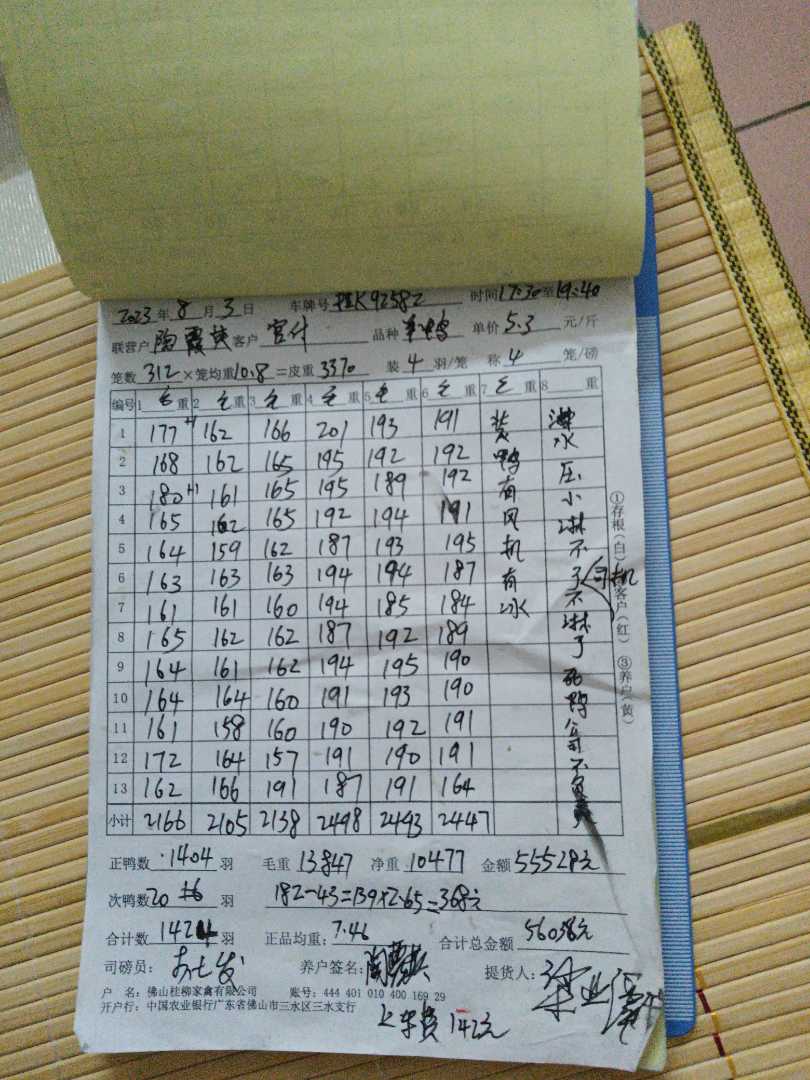 2023年8月3日 车牌号 桂K92582 时间17:30至19:40
联营户 陶霞芳 客户 官付 品种 半鸭 单价 5.3 元/斤
笼数 312 × 笼均重 10.8 = 皮重 3370 装 4 羽/笼 称 4 笼/磅
编号 1 毛重 2 毛重 3 毛重 4 毛重 5 毛重 6 毛重 7 毛重 8 重
1 177+1 162 166 201 193 191 装 淋水
2 168 162 165 195 192 192 鸭 压
3 180+1 161 165 195 189 192 有 小
4 165 162 165 192 194 191 风 淋
5 164 159 162 187 193 195 机 不
6 163 163 163 194 194 187 有 了 司机
7 161 161 160 194 185 184 冰 不
8 165 162 162 187 192 189 淋了
9 164 161 162 194 195 190 死
10 164 164 160 191 193 190 鸭
11 161 158 160 190 192 191 公司
12 172 164 157 191 190 191 不
13 162 166 191 187 191 164 负责
小计 2166 2105 2138 2498 2493 2447
正鸭数 1404 羽 毛重 13847 净重 10477 金额 55528元
次鸭数 20 羽 182-43=139×2.65=368元
合计数 1424 羽 正品均重: 7.46 合计总金额 56038元
司磅员: 养户签名: 提货人:
户 名: 佛山桂柳家禽有限公司 账号: 444 401 010 400 169 29
开户行: 中国农业银行广东省佛山市三水区三水支行
上车费 142元
①存根(白) ②客户(红) ③养户(黄)